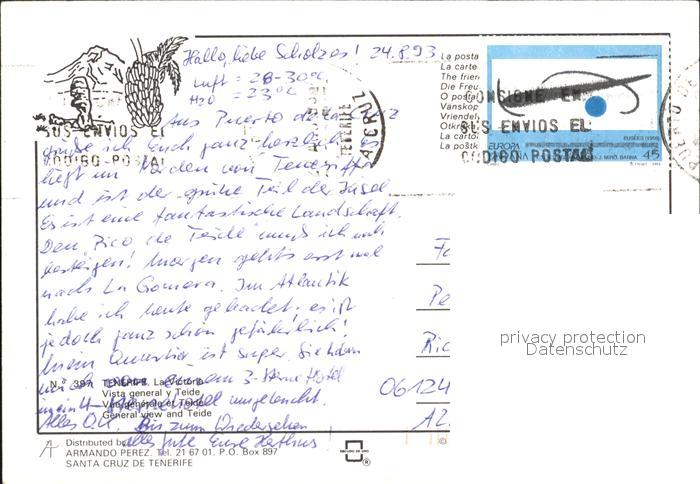 Hallo, liebe Scholzes! 24.8.93
Luft = 28-30°C
H2O = 23°C
Aus Puerto de la Cruz
grüße ich Euch ganz herzlich. Es
liegt im Norden von Teneriffa
und ist der grüne Teil der Insel.
Es ist eine fantastische Landschaft.
Den Pico de Teide muß ich noch
besteigen! Morgen gehts erst mal
nach La Gomera. Im Atlantik
habe ich heute gebadet, es ist
jedoch ganz schön gefährlich!
Mein Quartier ist super. Sie haben
3-Sterne Hotel
umgebucht.
Alles O.K. Bis zum Wiedersehen
alles Gute Eure
SUS ENVIOS EL
CODIGO POSTAL
TENERIFE
CRUZ
La posta
La carte
The frien
Die Freu
O posta
Vanskop
Vriendel
Otkri
La carto
La poštk
CONSIGNE EN
SUS ENVIOS EL
CODIGO POSTAL
EUROPA
J. MIRÓ. BARNA
45
PUERTO DE
Fa
Pe
Ric
06124
A2
privacy protection
Datenschutz
N.º 387 TENERIFE. La Victoria
Vista general y Teide
Vue générale et Teide
General view and Teide
Distributed by
ARMANDO PEREZ. Tel. 21 67 01. P.O. Box 897
SANTA CRUZ DE TENERIFE
ESCUDO DE ORO
®
©